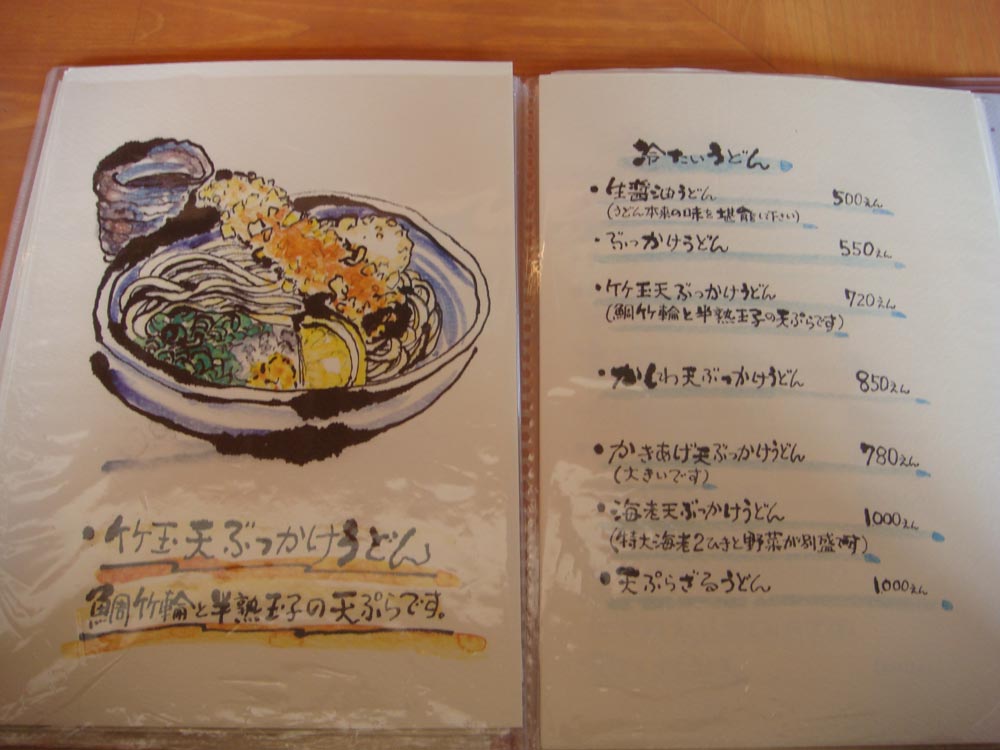 ・竹玉天ぶっかけうどん
鯛竹輪と半熟玉子の天ぷらです。
冷たいうどん
・生醤油うどん 500えん
(うどん本来の味を堪能し下さい)
・ぶっかけうどん 550えん
・竹玉天ぶっかけうどん 720えん
(鯛竹輪と半熟玉子の天ぷらです)
・かしわ天ぶっかけうどん 850えん
・かきあげ天ぶっかけうどん 780えん
(大きいです)
・海老天ぶっかけうどん 1000えん
(特大海老2ひきと野菜が別盛です)
・天ぷらざるうどん 1000えん